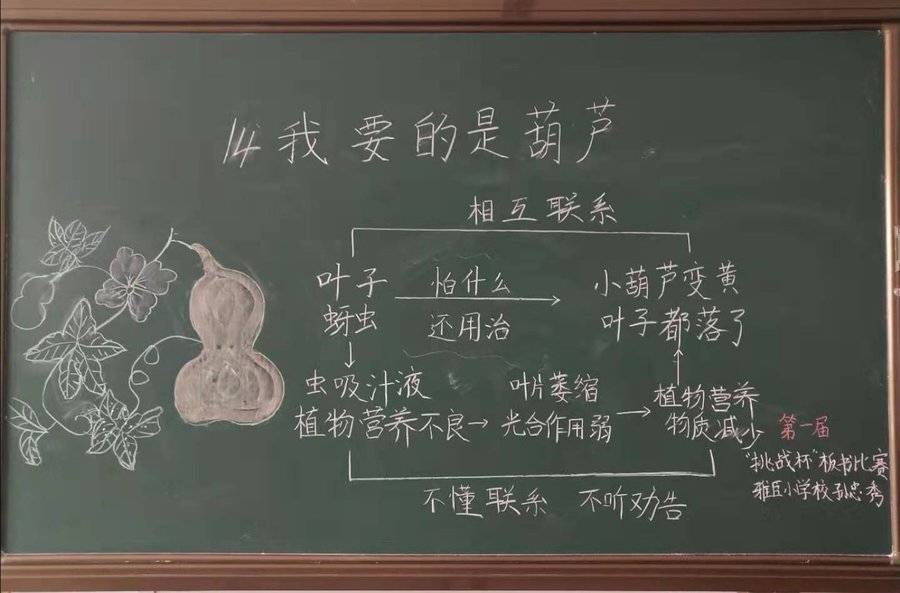 14 我要的是葫芦
相互联系
叶子 怕什么 小葫芦变黄
蚜虫 还用治 叶子都落了
虫吸汁液 叶片萎缩 植物营养
植物营养不良 光合作用弱 物质减少
第一届
"挑战杯"板书比赛
雅丘小学校孙忠秀
不懂联系 不听劝告